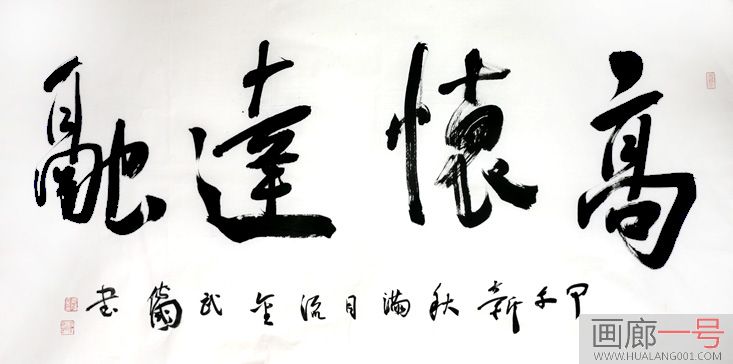 高懷達融
甲午新秋滿目流金武書
画廊一号
WWW.HUALANG001.COM